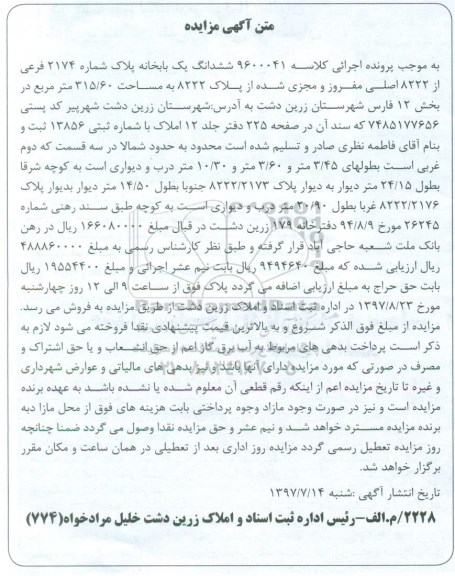 متن آگهی مزایده
به موجب پرونده اجرائی کلاسه ۹۶۰۰۰۴۱ ششدانگ یک بابخانه پلاک شماره ۲۱۷۴ فرعی
از ۸۲۲۲ اصلی مفروز و مجزی شده از پلاک ۸۲۲۲ به مساحت ۳۱۵/۶۰ متر مربع در
بخش ۱۲ فارس شهرستان زرین دشت به آدرس:شهرستان زرین دشت شهرپیر کد پستی
۷۴۸۵۱۷۷۶۵۶ که سند آن در صفحه ۲۲۵ دفتر جلد ۱۲ املاک با شماره ثبتی ۱۳۸۵۶ ثبت و
بنام آقای فاطمه نظری صادر و تسلیم شده است محدود به حدود شمالا در سه قسمت که دوم
غربی است بطولهای ۳/۴۵ متر و ۳/۶۰ متر و ۱۰/۳۰ متر درب و دیواری است به کوچه شرقا
بطول ۲۴/۱۵ متر دیوار به دیوار پلاک ۸۲۲۲/۲۱۷۳ جنوبا بطول ۱۴/۵۰ متر دیوار بدیوار پلاک
۸۲۲۲/۲۱۷۶ غربا بطول ۲۰/۹۰ متر درب و دیواری است به کوچه طبق سند رهنی شماره
۲۶۲۴۵ مورخ ۹۴/۸/۹ دفترخانه ۱۷۹ زرین دشت در قبال مبلغ ۱۶۶۰۸۰۰۰۰ ریال در رهن
بانک ملت شعبه حاجی آباد قرار گرفته و طبق نظر کارشناس رسمی به مبلغ ۴۸۸۸۶۰۰۰۰
ریال ارزیابی شده که مبلغ ۹۴۹۴۶۴۰ ریال بابت نیم عشر اجرائی و مبلغ ۱۹۵۵۴۴۰۰ ریال
بابت حق حراج به مبلغ ارزیابی اضافه می گردد پلاک فوق از ساعت ۹ الی ۱۲ روز چهارشنبه
مورخ ۱۳۹۷/۸/۲۳ در اداره ثبت اسناد و املاک زرین دشت از طریق مزایده به فروش می رسد.
مزایده از مبلغ فوق الذکر شروع و به بالاترین قیمت پیشنهادی نقدا فروخته می شود لازم به
ذکر است پرداخت بدهی های مربوط به آب برق گاز اعم از حق انشعاب و یا حق اشتراک و
مصرف در صورتی که مورد مزایده دارای آنها باشد و نیز بدهی های مالیاتی و عوارض شهرداری
و غیره تا تاریخ مزایده اعم از اینکه رقم قطعی آن معلوم شده یا نشده باشد به عهده برنده
مزایده است و نیز در صورت وجود مازاد وجوه پرداختی بابت هزینه های فوق از محل مازا دبه
برنده مزایده مسترد خواهد شد و نیم عشر و حق مزایده نقدا وصول می گردد ضمنا چنانچه
روز مزایده تعطیل رسمی گردد مزایده روز اداری بعد از تعطیلی در همان ساعت و مکان مقرر
برگزار خواهد شد.
تاریخ انتشار آگهی :شنبه ۱۳۹۷/۷/۱۴
۲۲۲۸/م.الف-رئیس اداره ثبت اسناد و املاک زرین دشت خلیل مرادخواه(۷۷۴)